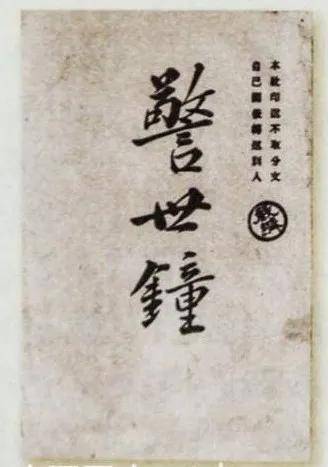 本社印送不取分文
自己閱後轉送別人
警世鐘